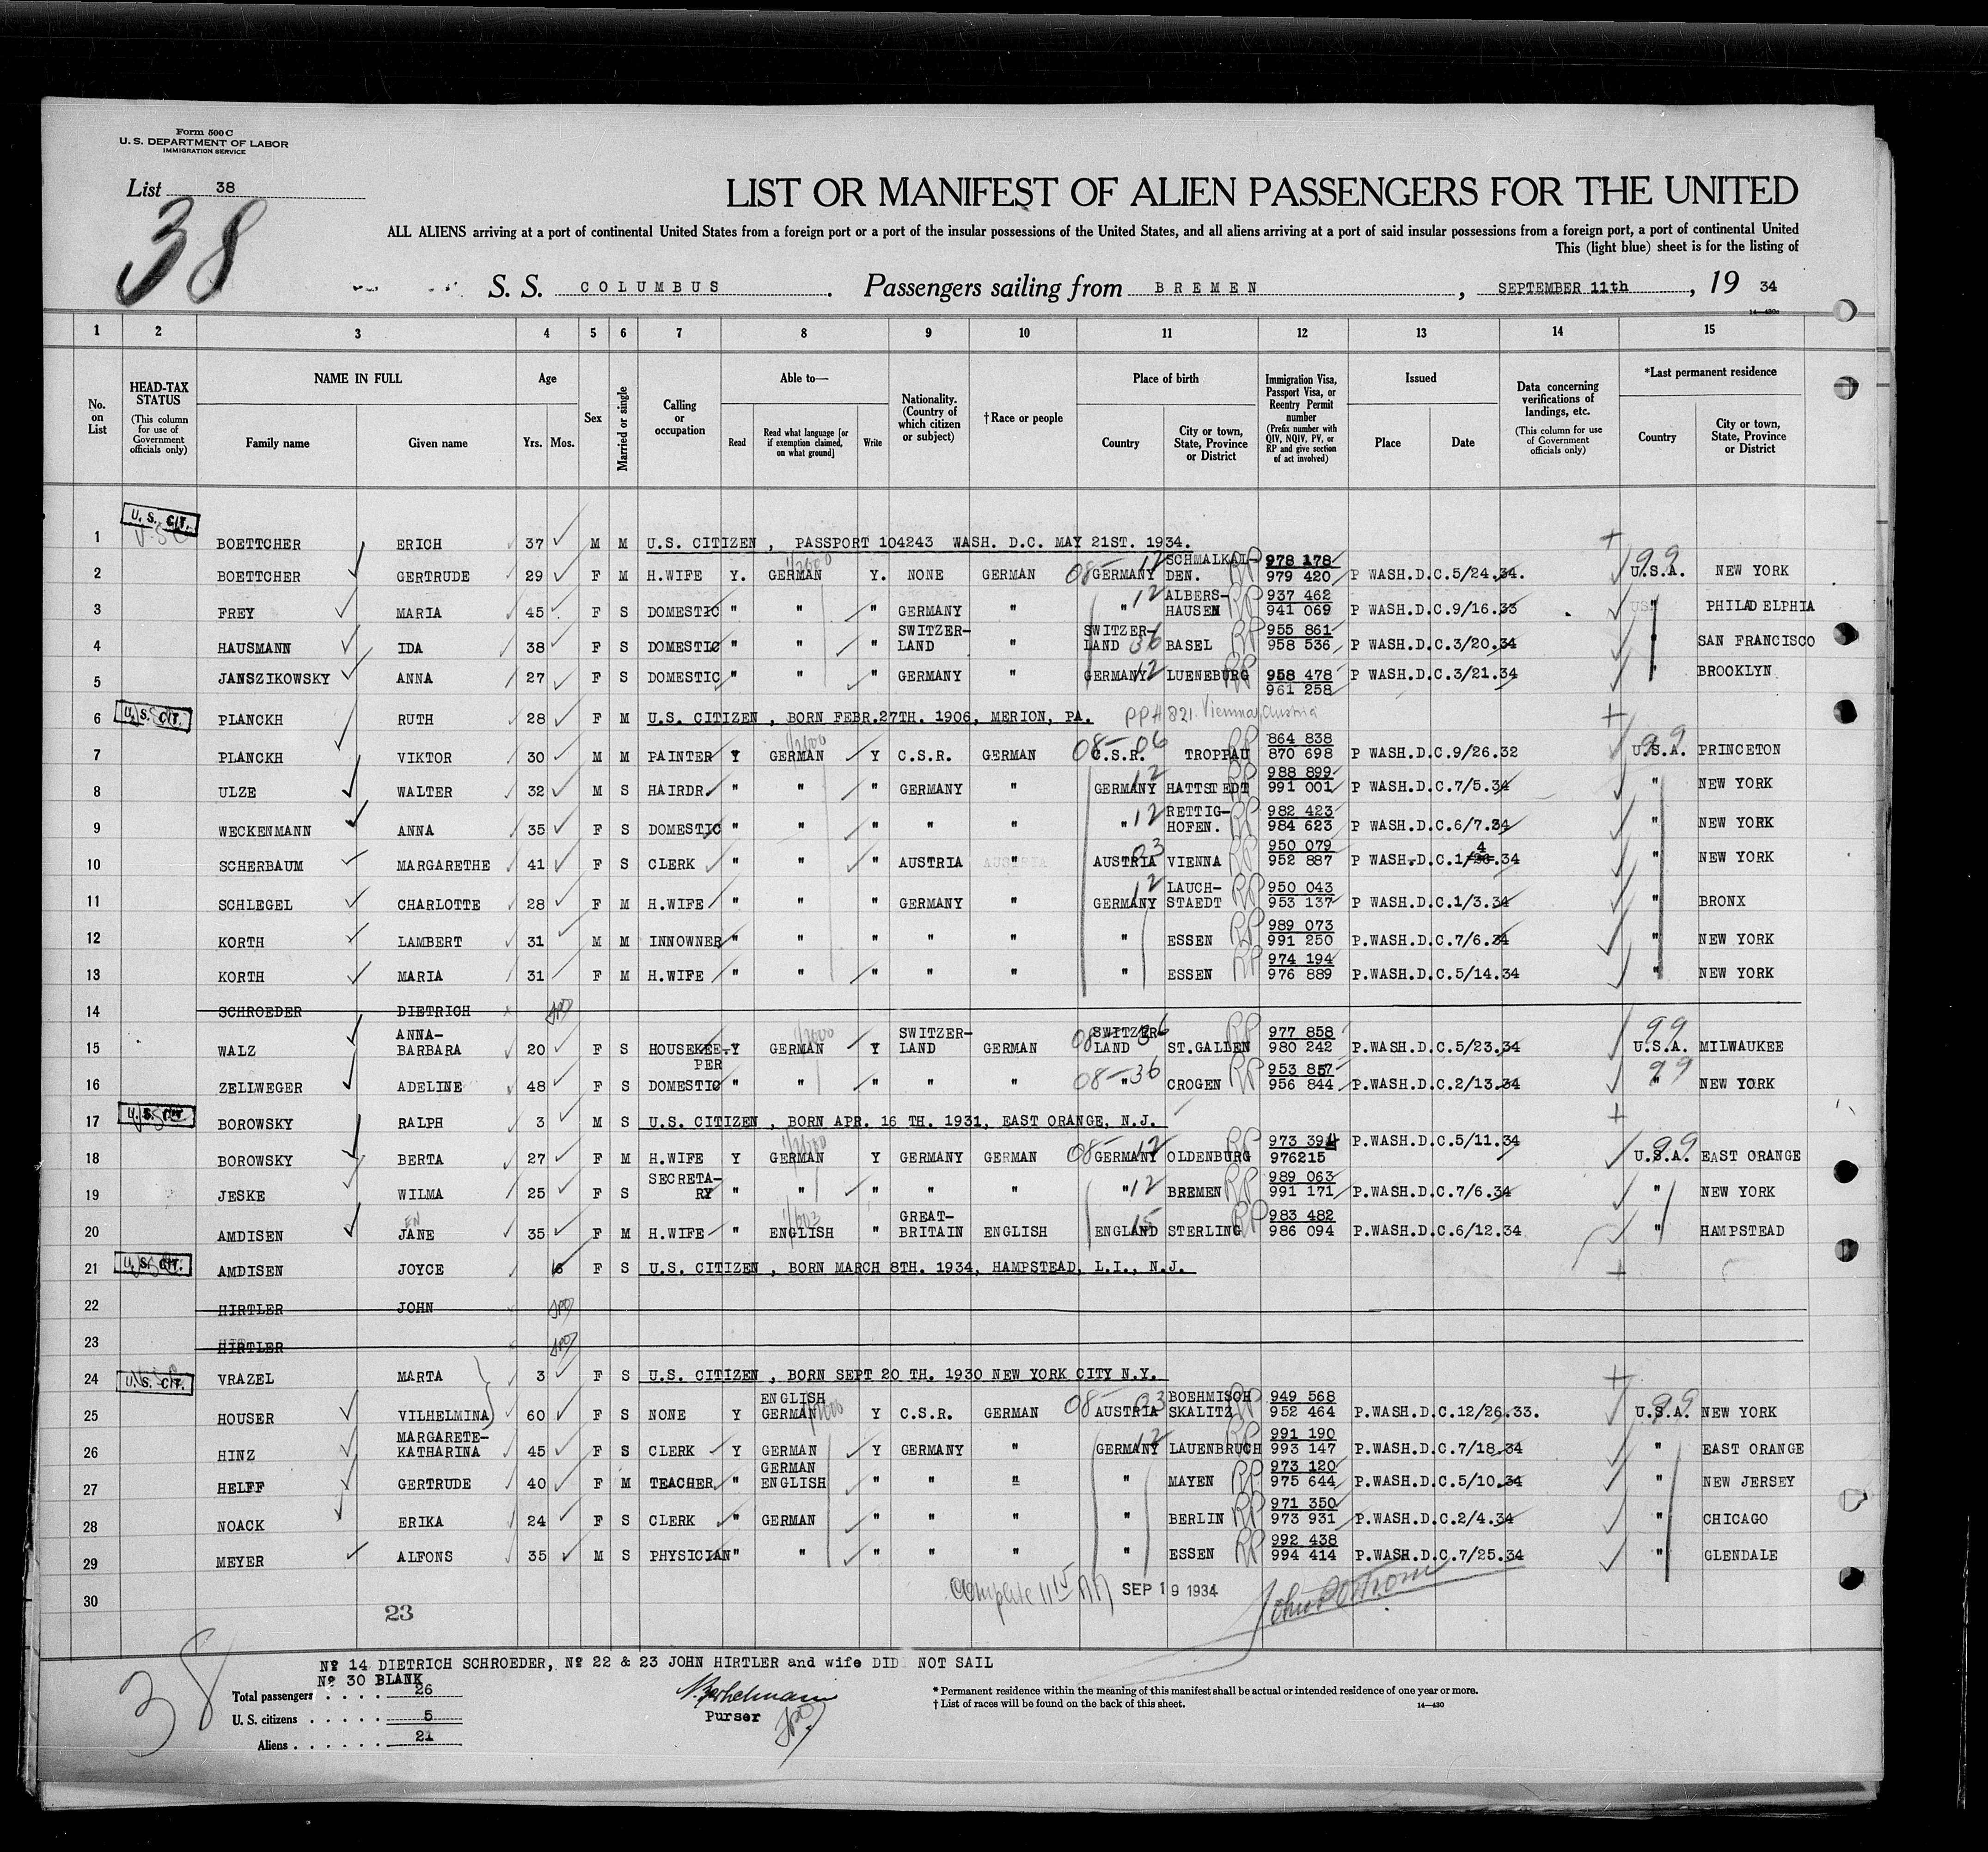 Form 500 C
U. S. DEPARTMENT OF LABOR
IMMIGRATION SERVICE
List 38
38
LIST OR MANIFEST OF ALIEN PASSENGERS FOR THE UNITED
ALL ALIENS arriving at a port of continental United States from a foreign port or a port of the insular possessions of the United States, and all aliens arriving at a port of said insular possessions from a foreign port, a port of continental United
This (light blue) sheet is for the listing of
S. S. COLUMBUS. Passengers sailing from BREMEN, SEPTEMBER 11th, 19 34
14—430c
1 2 3 4 5 6 7 8 9 10 11 12 13 14 15
No. on List
HEAD-TAX STATUS (This column for use of Government officials only)
NAME IN FULL
Family name Given name
Age
Yrs. Mos.
Sex
Married or single
Calling or occupation
Able to—
Read
Read what language [or if exemption claimed, on what ground]
Write
Nationality. (Country of which citizen or subject)
†Race or people
Place of birth
Country
City or town, State, Province or District
Immigration Visa, Passport Visa, or Reentry Permit number (Prefix number with QIV, NQIV, PV, or RP and give section of act involved)
Issued
Place Date
Data concerning verifications of landings, etc. (This column for use of Government officials only)
*Last permanent residence
Country
City or town, State, Province or District
1 U. S. CIT. BOETTCHER ERICH 37 M M U.S. CITIZEN , PASSPORT 104243 WASH. D.C. MAY 21ST. 1934.
2 BOETTCHER GERTRUDE 29 F M H.WIFE Y. GERMAN Y. NONE GERMAN 08- GERMANY 12 SCHMALKAL-DEN. RP 978 178 979 420 P WASH.D.C.5/24.34. 99 U.S.A. NEW YORK
3 FREY MARIA 45 F S DOMESTIC " " " GERMANY " " 12 ALBERS-HAUSEN RP 937 462 941 069 P WASH.D.C.9/16.33 " PHILADELPHIA
4 HAUSMANN IDA 38 F S DOMESTIC " " " SWITZER-LAND " SWITZER-LAND 36 BASEL RP 955 861 958 536 P WASH.D.C.3/20.34 " SAN FRANCISCO
5 JANSZIKOWSKY ANNA 27 F S DOMESTIC " " " GERMANY " GERMANY 12 LUENEBURG RP 958 478 961 258 P WASH.D.C.3/21.34 " BROOKLYN
6 U. S. CIT. PLANCKH RUTH 28 F M U.S. CITIZEN , BORN FEBR.27TH. 1906, MERION, PA. PP# 821. Vienna, Austria
7 PLANCKH VIKTOR 30 M M PAINTER Y GERMAN Y C.S.R. GERMAN 08-06 C.S.R. TROPPAU RP 864 838 870 698 P WASH.D.C.9/26.32 99 U.S.A. PRINCETON
8 ULZE WALTER 32 M S HAIRDR. " " " GERMANY " GERMANY 12 HATTSTEDT RP 988 899 991 001 P WASH.D.C.7/5.34 " NEW YORK
9 WECKENMANN ANNA 35 F S DOMESTIC " " " " " " 12 RETTIG-HOFEN. RP 982 423 984 623 P WASH.D.C.6/7.34 " NEW YORK
10 SCHERBAUM MARGARETHE 41 F S CLERK " " " AUSTRIA " AUSTRIA 03 VIENNA RP 950 079 952 887 P WASH.D.C.1/4.34 " NEW YORK
11 SCHLEGEL CHARLOTTE 28 F M H.WIFE " " " GERMANY " GERMANY 12 LAUCH-STAEDT RP 950 043 953 137 P WASH.D.C.1/3.34 " BRONX
12 KORTH LAMBERT 31 M M INNOWNER " " " " " " ESSEN RP 989 073 991 250 P.WASH.D.C.7/6.34 " NEW YORK
13 KORTH MARIA 31 F M H.WIFE " " " " " " ESSEN RP 974 194 976 889 P.WASH.D.C.5/14.34 " NEW YORK
14 SCHROEDER DIETRICH
15 WALZ ANNA-BARBARA 20 F S HOUSEKEE-PER Y GERMAN Y SWITZER-LAND GERMAN 08 SWITZER-LAND 36 ST.GALLEN RP 977 858 980 242 P.WASH.D.C.5/23.34 99 U.S.A. MILWAUKEE
16 ZELLWEGER ADELINE 48 F S DOMESTIC " " " " " 08-36 " CROGEN RP 953 857 956 844 P.WASH.D.C.2/13.34 99 " NEW YORK
17 U. S. CIT BOROWSKY RALPH 3 M S U.S. CITIZEN , BORN APR. 16 TH. 1931, EAST ORANGE, N.J.
18 BOROWSKY BERTA 27 F M H.WIFE Y GERMAN Y GERMANY GERMAN 08- GERMANY 12 OLDENBURG RP 973 394 976215 P.WASH.D.C.5/11.34 99 U.S.A. EAST ORANGE
19 JESKE WILMA 25 F S SECRETA-RY " " " " " " 12 BREMEN RP 989 063 991 171 P.WASH.D.C.7/6.34 " NEW YORK
20 AMDISEN EN JANE 35 F M H.WIFE " ENGLISH " GREAT-BRITAIN ENGLISH ENGLAND 15 STERLING RP 983 482 986 094 P.WASH.D.C.6/12.34 " HAMPSTEAD
21 U. S. CIT. AMDISEN JOYCE 6 F S U.S. CITIZEN , BORN MARCH 8TH. 1934, HAMPSTEAD, L.I., N.J.
22 HIRTLER JOHN
23 HIRTLER
24 U. S. CIT. VRAZEL MARTA 3 F S U.S. CITIZEN , BORN SEPT 20 TH. 1930 NEW YORK CITY N.Y.
25 HOUSER VILHELMINA 60 F S NONE Y ENGLISH GERMAN Y C.S.R. GERMAN 08- AUSTRIA 03 BOEHMISCH SKALITZ RP 949 568 952 464 P.WASH.D.C.12/26.33. 99 U.S.A. NEW YORK
26 HINZ MARGARETE-KATHARINA 45 F S CLERK Y GERMAN Y GERMANY " GERMANY 12 LAUENBRUCH RP 991 190 993 147 P.WASH.D.C.7/18.34 " EAST ORANGE
27 HELFF GERTRUDE 40 F M TEACHER " GERMAN ENGLISH " " " " MAYEN RP 973 120 975 644 P.WASH.D.C.5/10.34 " NEW JERSEY
28 NOACK ERIKA 24 F S CLERK " GERMAN " " " " BERLIN RP 971 350 973 931 P.WASH.D.C.2/4.34 " CHICAGO
29 MEYER ALFONS 35 M S PHYSICIAN " " " " " " ESSEN RP 992 438 994 414 P.WASH.D.C.7/25.34 " GLENDALE
30
Complete 11 15 SEP 19 1934
23
38
Nº 14 DIETRICH SCHROEDER, Nº 22 & 23 JOHN HIRTLER and wife DID NOT SAIL
Nº 30 BLANK
Total passengers . . . . 26
U. S. citizens . . . . . 5
Aliens . . . . . . 21
Purser
* Permanent residence within the meaning of this manifest shall be actual or intended residence of one year or more.
† List of races will be found on the back of this sheet.
14—430